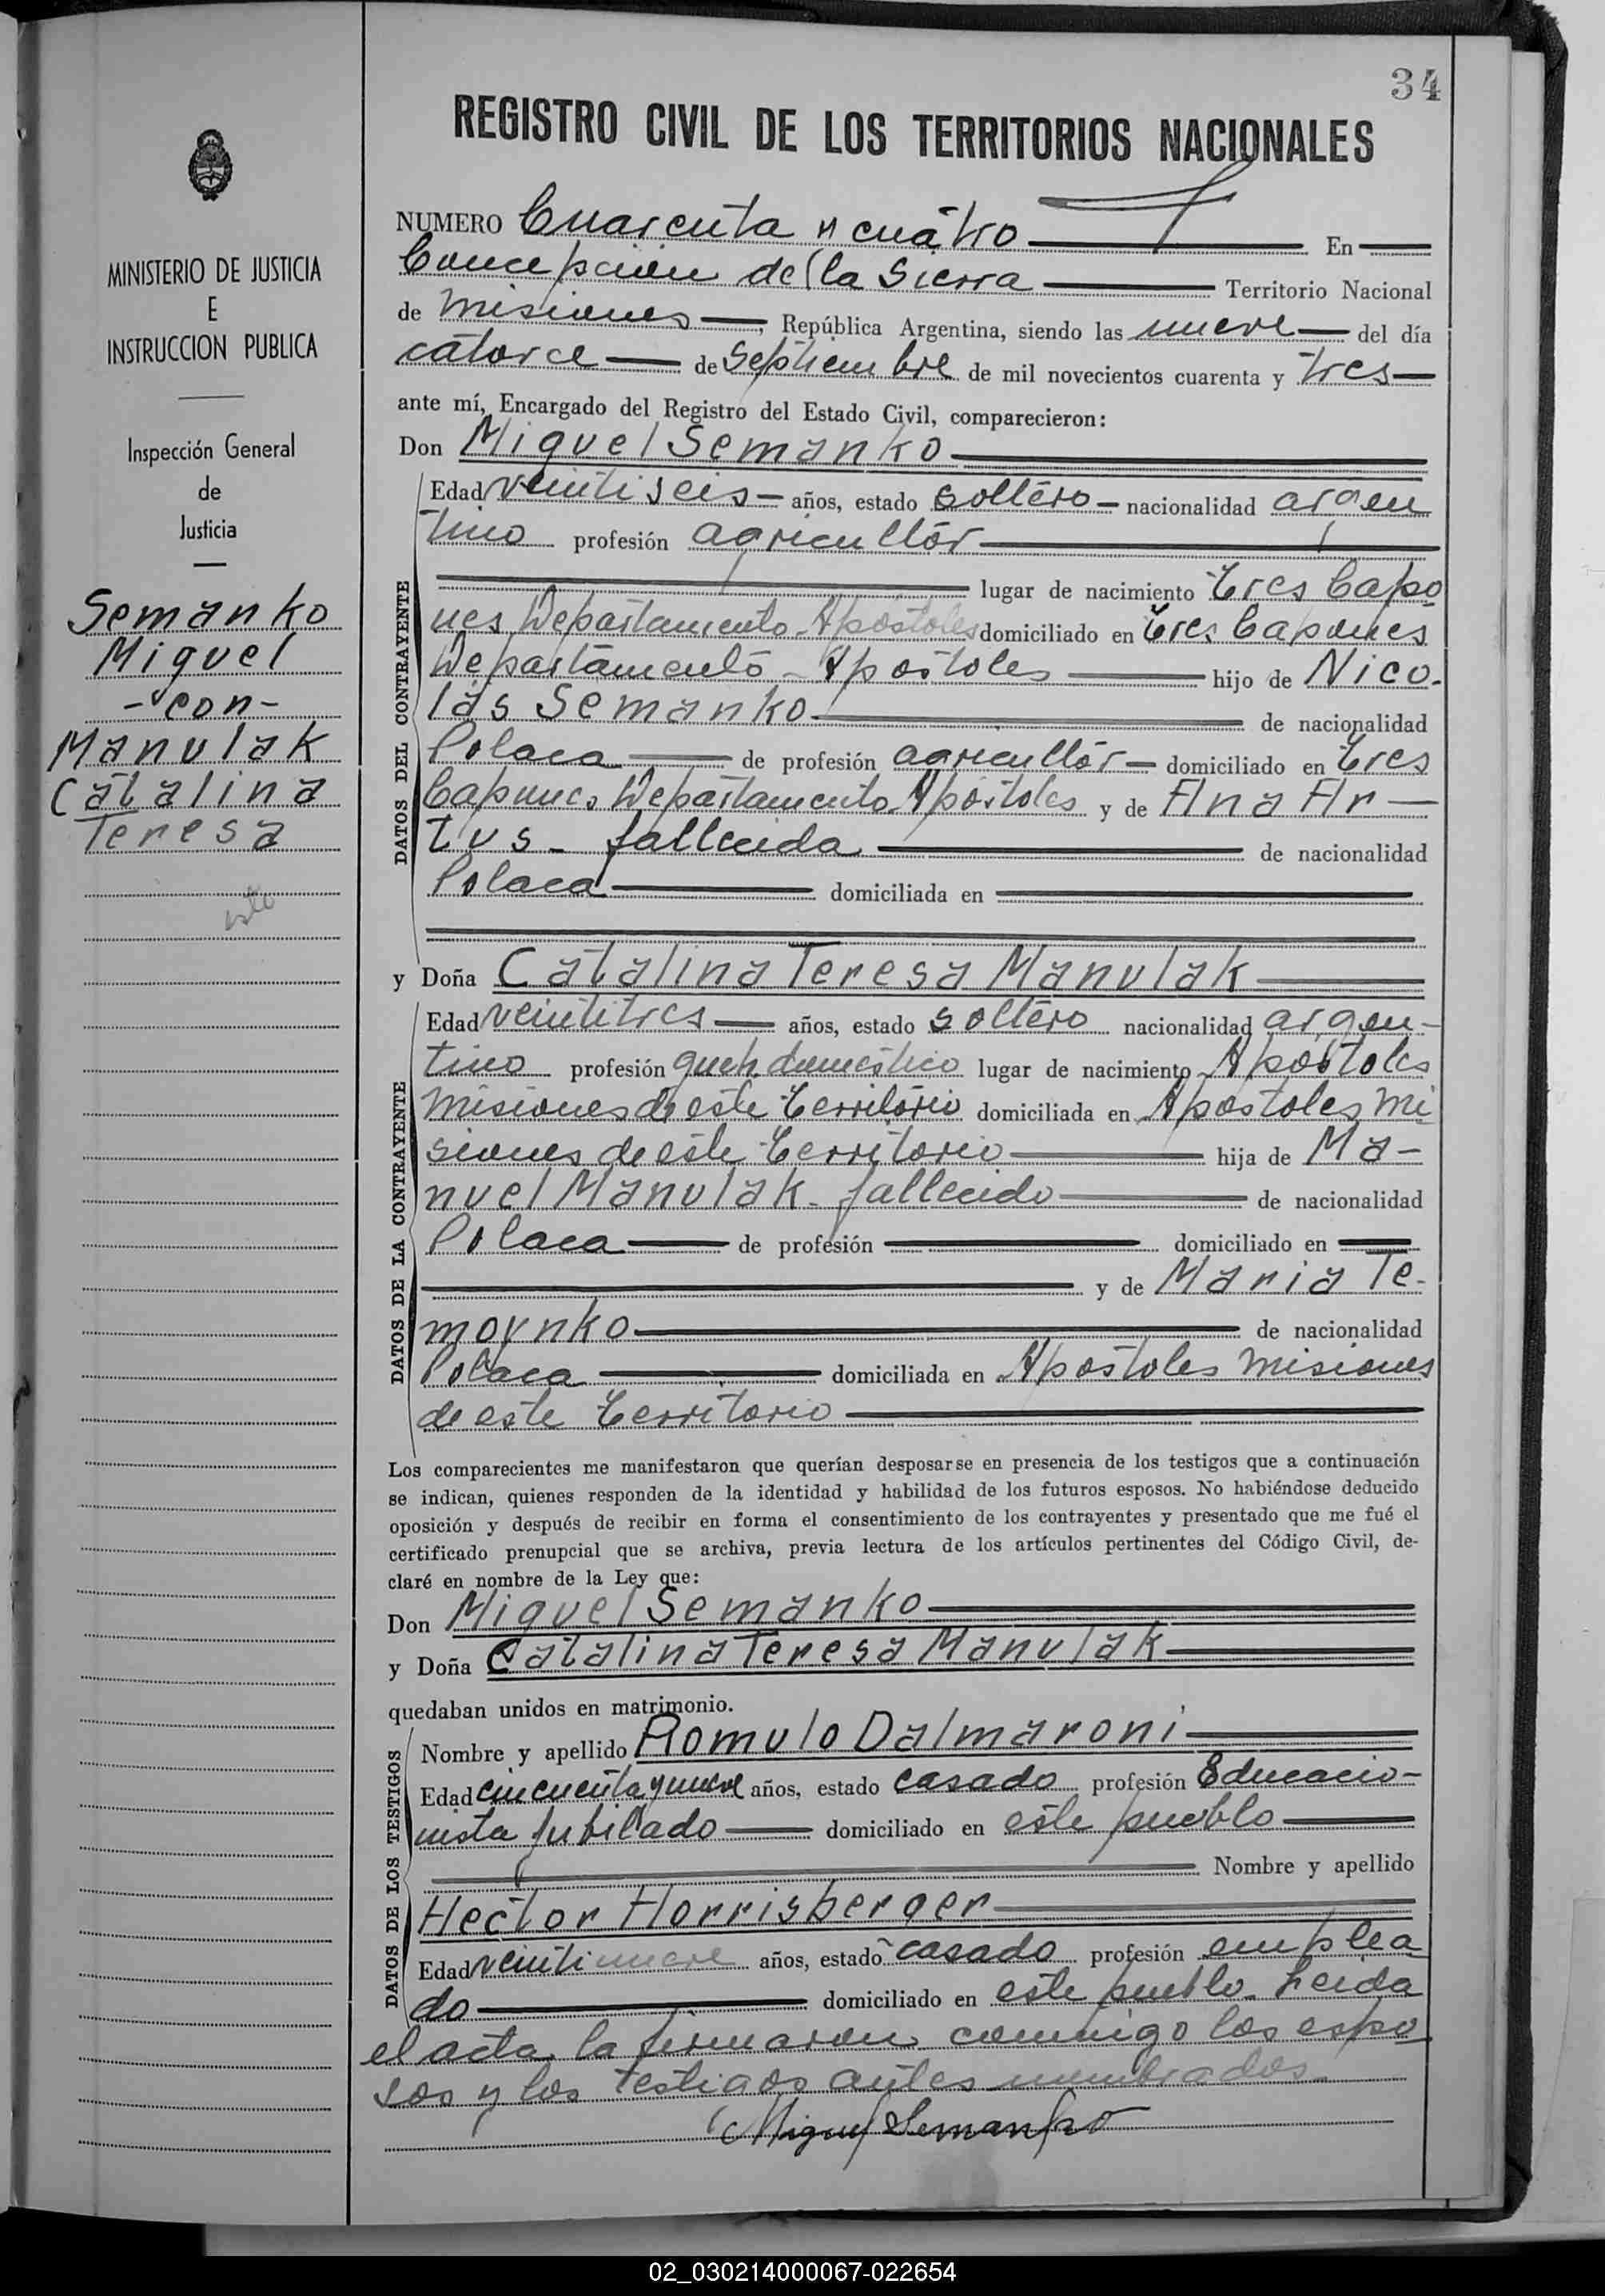 34
REGISTRO CIVIL DE LOS TERRITORIOS NACIONALES
MINISTERIO DE JUSTICIA
E
INSTRUCCION PUBLICA
Inspección General
de
Justicia
Semanko
Miguel
-con-
Manulak
Catalina
Teresa
NUMERO Cuarenta y cuatro En
Concepcion de la Sierra Territorio Nacional
de Misiones, República Argentina, siendo las nueve del día
catorce de Septiembre de mil novecientos cuarenta y tres
ante mí, Encargado del Registro del Estado Civil, comparecieron:
Don Miguel Semanko
DATOS DEL CONTRAYENTE
Edad veintiseis años, estado soltero nacionalidad argen
tino profesión agricultor
lugar de nacimiento Tres Capo
nes Departamento Apostoles domiciliado en Tres Capones
Departamento Apostoles hijo de Nico-
las Semanko de nacionalidad
Polaca de profesión agricultor domiciliado en Tres
Capones Departamento Apostoles y de Ana Ar-
tus - fallecida de nacionalidad
Polaca domiciliada en
y Doña Catalina Teresa Manulak
DATOS DE LA CONTRAYENTE
Edad veintitres años, estado soltero nacionalidad argen-
tino profesión queh. domestico lugar de nacimiento Apostoles
Misiones de este Territorio domiciliada en Apostoles Mi
siones de este Territorio hija de Ma-
nuel Manulak - fallecido de nacionalidad
Polaca de profesión domiciliado en
y de Maria Te-
moynko de nacionalidad
Polaca domiciliada en Apostoles Misiones
de este Territorio
Los comparecientes me manifestaron que querían desposarse en presencia de los testigos que a continuación
se indican, quienes responden de la identidad y habilidad de los futuros esposos. No habiéndose deducido
oposición y después de recibir en forma el consentimiento de los contrayentes y presentado que me fué el
certificado prenupcial que se archiva, previa lectura de los artículos pertinentes del Código Civil, de-
claré en nombre de la Ley que:
Don Miguel Semanko
y Doña Catalina Teresa Manulak
quedaban unidos en matrimonio.
DATOS DE LOS TESTIGOS
Nombre y apellido Romulo Dalmaroni
Edad cincuenta y nueve años, estado casado profesión Educacio-
nista jubilado domiciliado en este pueblo
Nombre y apellido
Hector Horrisberger
Edad veintinueve años, estado casado profesión emplea
do domiciliado en este pueblo. Leida
el acta la firmaron conmigo los espo
sos y los testigos antes nombrados.
Miguel Semanko
02_030214000067-022654